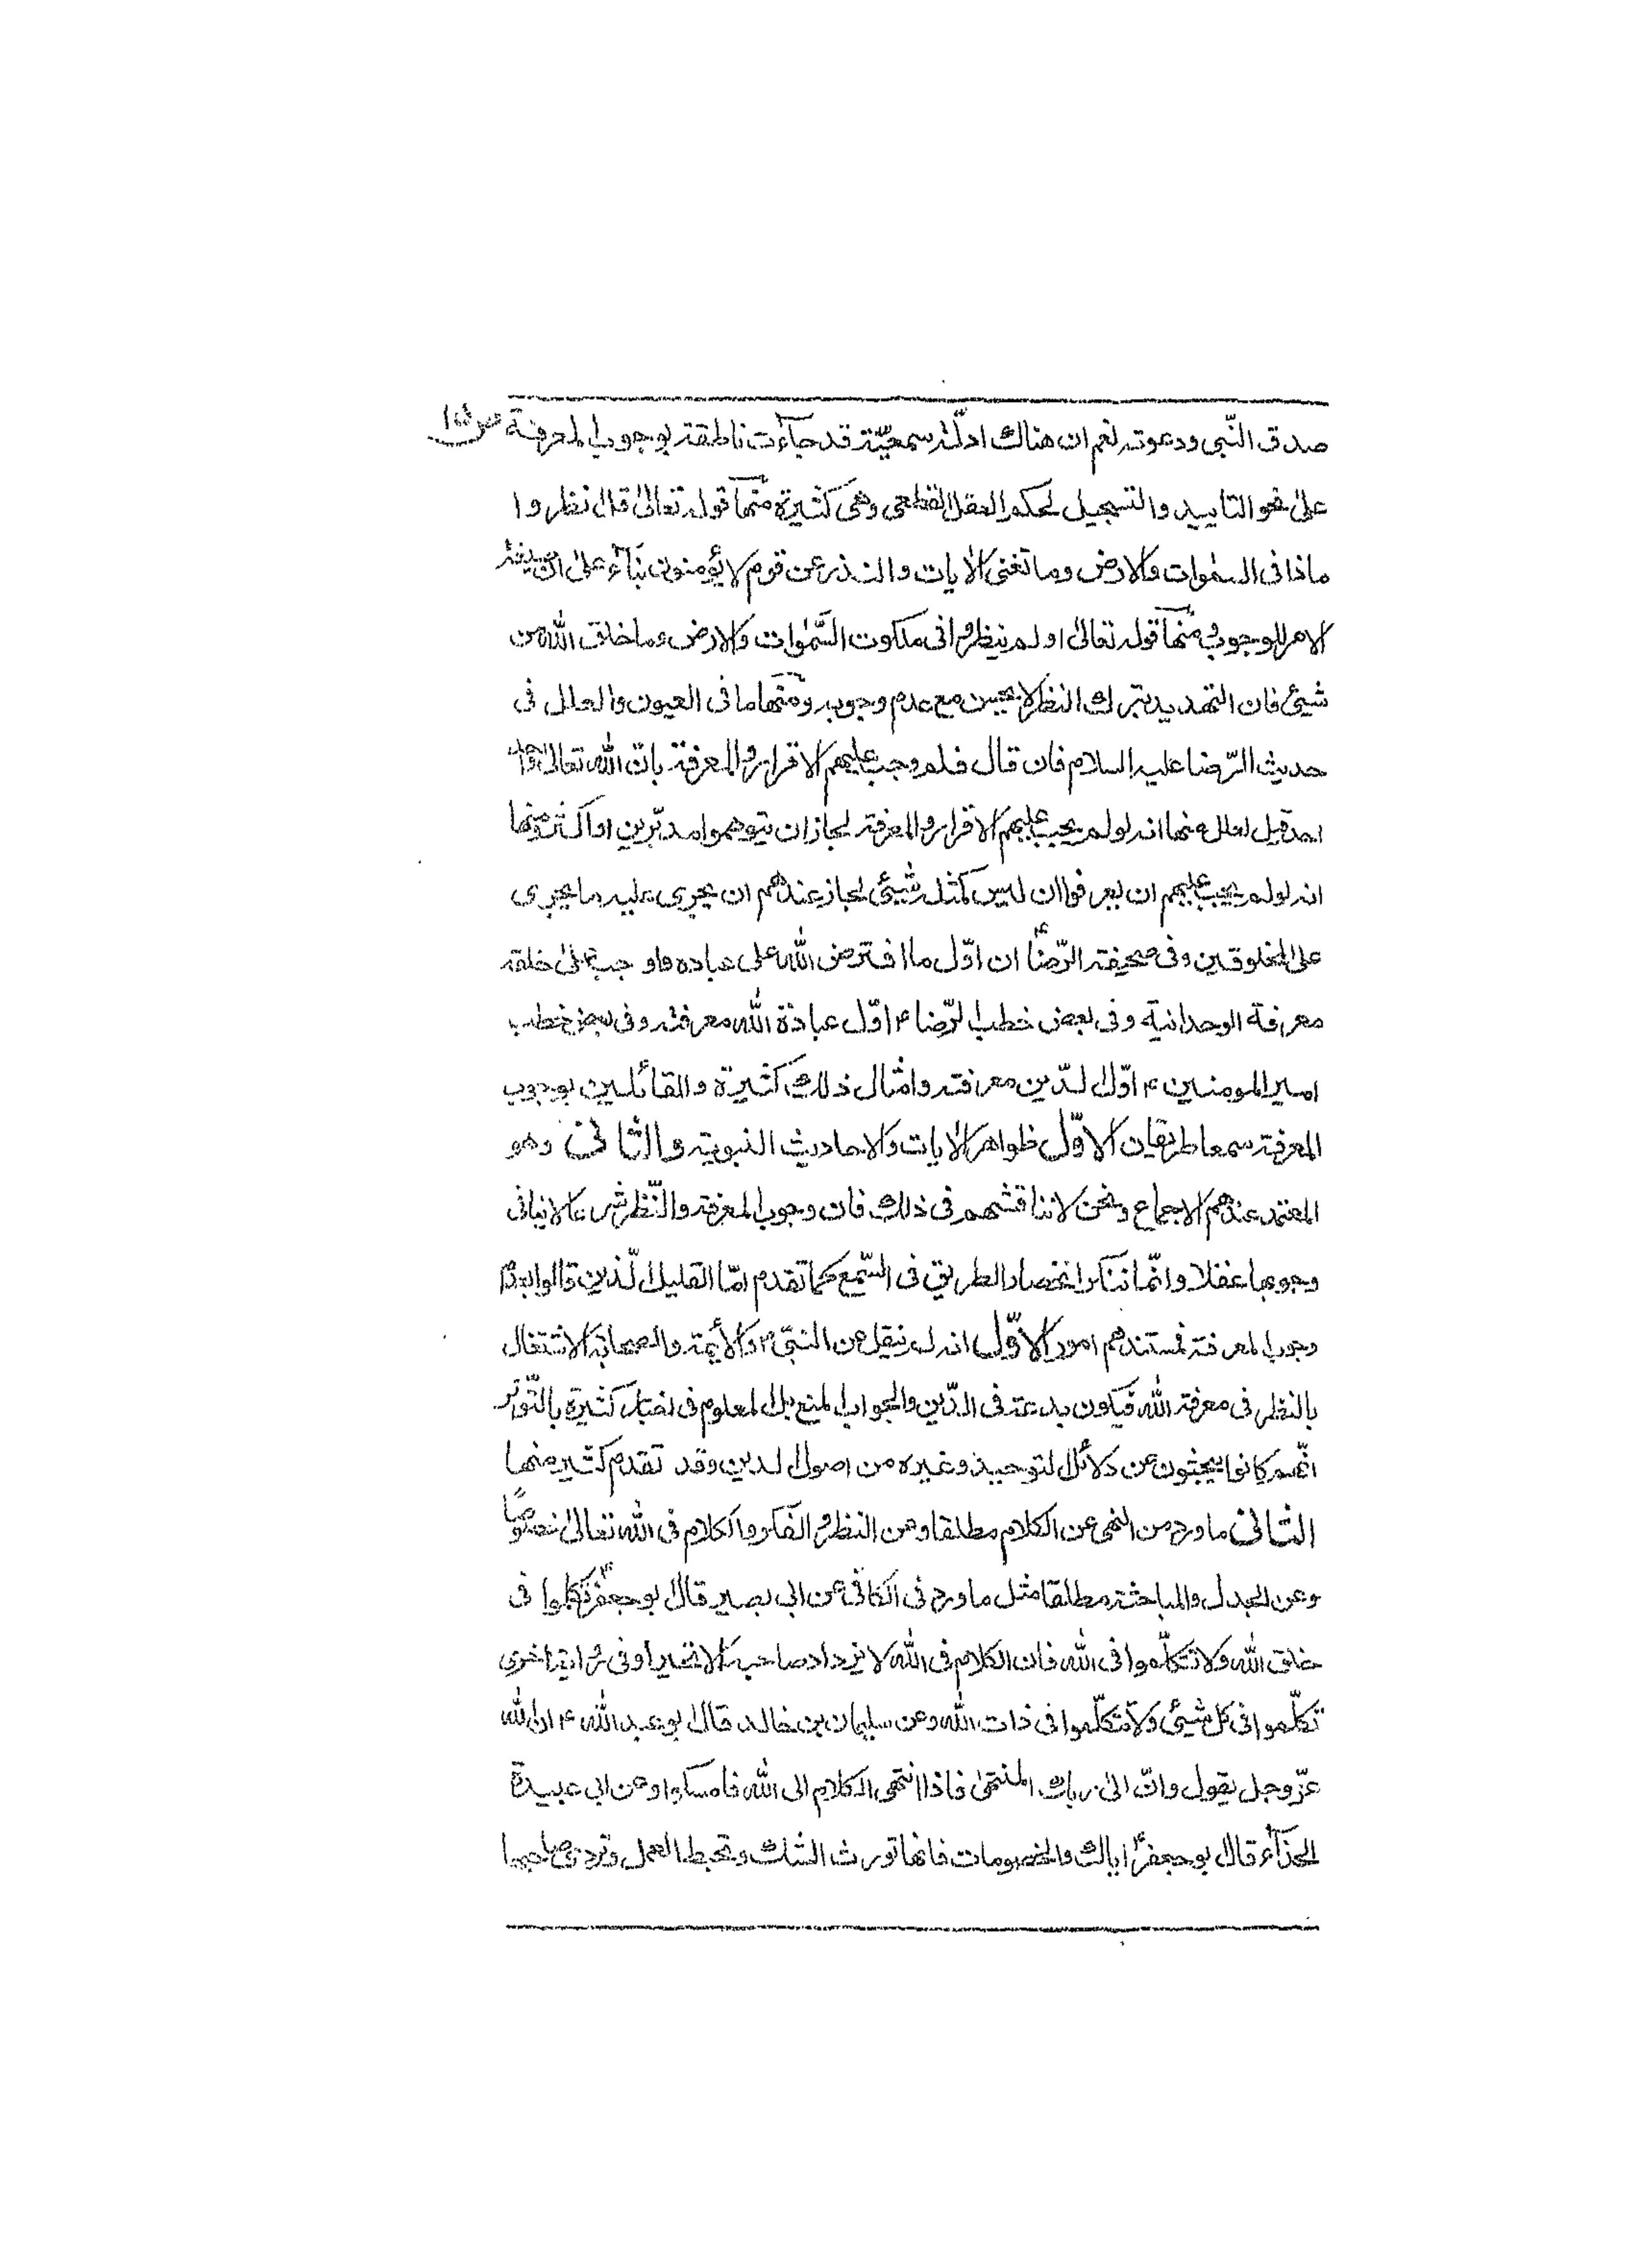 صدق النّبي ودعوته نعم ان هناك ادلّة سمعيّة قد جآءت ناطقة بوجوب المعرفة
على نحو التاييد والتسجيل لحكم العقل القطعى وهى كثيرة منهآ قوله تعالى قل انظروا
ماذا فى السموات والارض وما تغنى الايات والنذر عن قوم لا يؤمنون بنآء على ان
الامر للوجوب ومنهآ قوله تعالى اولم ينظروا فى ملكوت السّموات والارض وما خلق الله من
شيئ فان التهديد بترك النظر لا يحسن مع عدم وجوبه ومنها ما فى العيون والعلل فى
حديث الرّضا عليه السلام فان قال فلم وجب عليهم الاقرار والمعرفة بانّ الله تعالى واحد
احد قيل لعلل منها انه لو لم يجب عليهم الاقرار والمعرفة لجاز ان يتوهموا مدبّرين او اكثر ومنها
انه لو لم يجب عليهم ان يعرفوا ان ليس كمثله شيئ لجاز عندهم ان يجرى عليه ما يجرى
على المخلوقين وفى صحيفة الرّضاء ان اوّل ما افترض الله على عباده واوجب على خلقه
معرفة الوحدانية وفى بعض خطب الرّضا ء اوّل عبادة الله معرفته وفى بعض خطب
امير المومنين ء اوّل الدّين معرفته وامثال ذلك كثيرة والقائلين بوجوب
المعرفة سمعا طريقان الاوّل ظواهر الايات والاحاديث النبوية والثانى وهو
المعتمد عندهم الاجماع ونحن لا نناقشهم فى ذلك فان وجوب المعرفة والنّظر شرعا لا ينافى
وجوبها عقلا وانّما ننكر انحصار الطريق فى السّمع كما تقدم امّا القليل الّذين قالوا بعدم
وجوب المعرفة فمستندهم امور الاوّل انه لم ينقل عن النبىّ ص والائمة والصحابة الاشتغال
بالنظر فى معرفة الله فيكون بدعة فى الدّين والجواب المنع بل المعلوم فى اخبار كثيرة بالتّواتر
انّهم كانوا يبحثون عن دلائل التوحيد وغيره من اصول الدين وقد تقدم كثير منها
الثانى ما ورد من النهى عن الكلام مطلقا وعن النظر والفكر والكلام فى الله تعالى خصوصًا
وعن الجدل والمباحثة مطلقا مثل ما ورد فى الكافى عن ابى بصير قال ابو جعفر ء تكلموا فى
خلق الله ولا تتكلّموا فى الله فان الكلام فى الله لا يزداد صاحبه الا تحيرا وفى رواية اخرى
تكلّموا فى كل شيئ ولا تتكلّموا فى ذات الله وعن سليمان بن خالد قال ابو عبد الله ء ان الله
عزّ وجل يقول وانّ الى ربك المنتهى فاذا انتهى الكلام الى الله فامسكوا وعن ابى عبيدة
الحذآء قال ابو جعفر ء اياك والخصومات فانها تورث الشك وتحبط العمل وتردى صاحبها